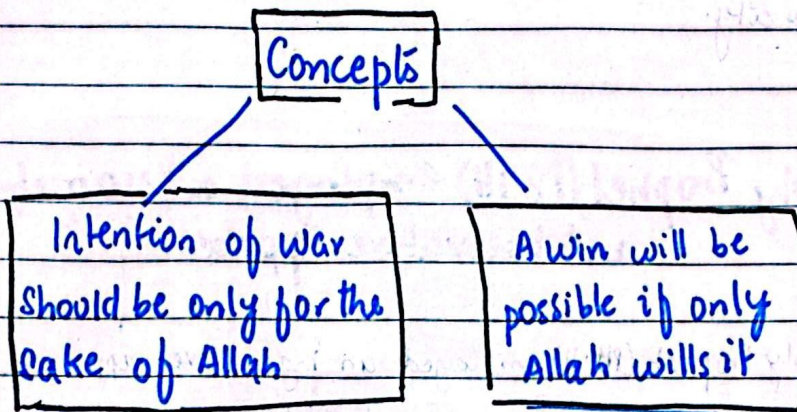 Concepts
Intention of war
should be only for the
sake of Allah
A win will be
possible if only
Allah wills it